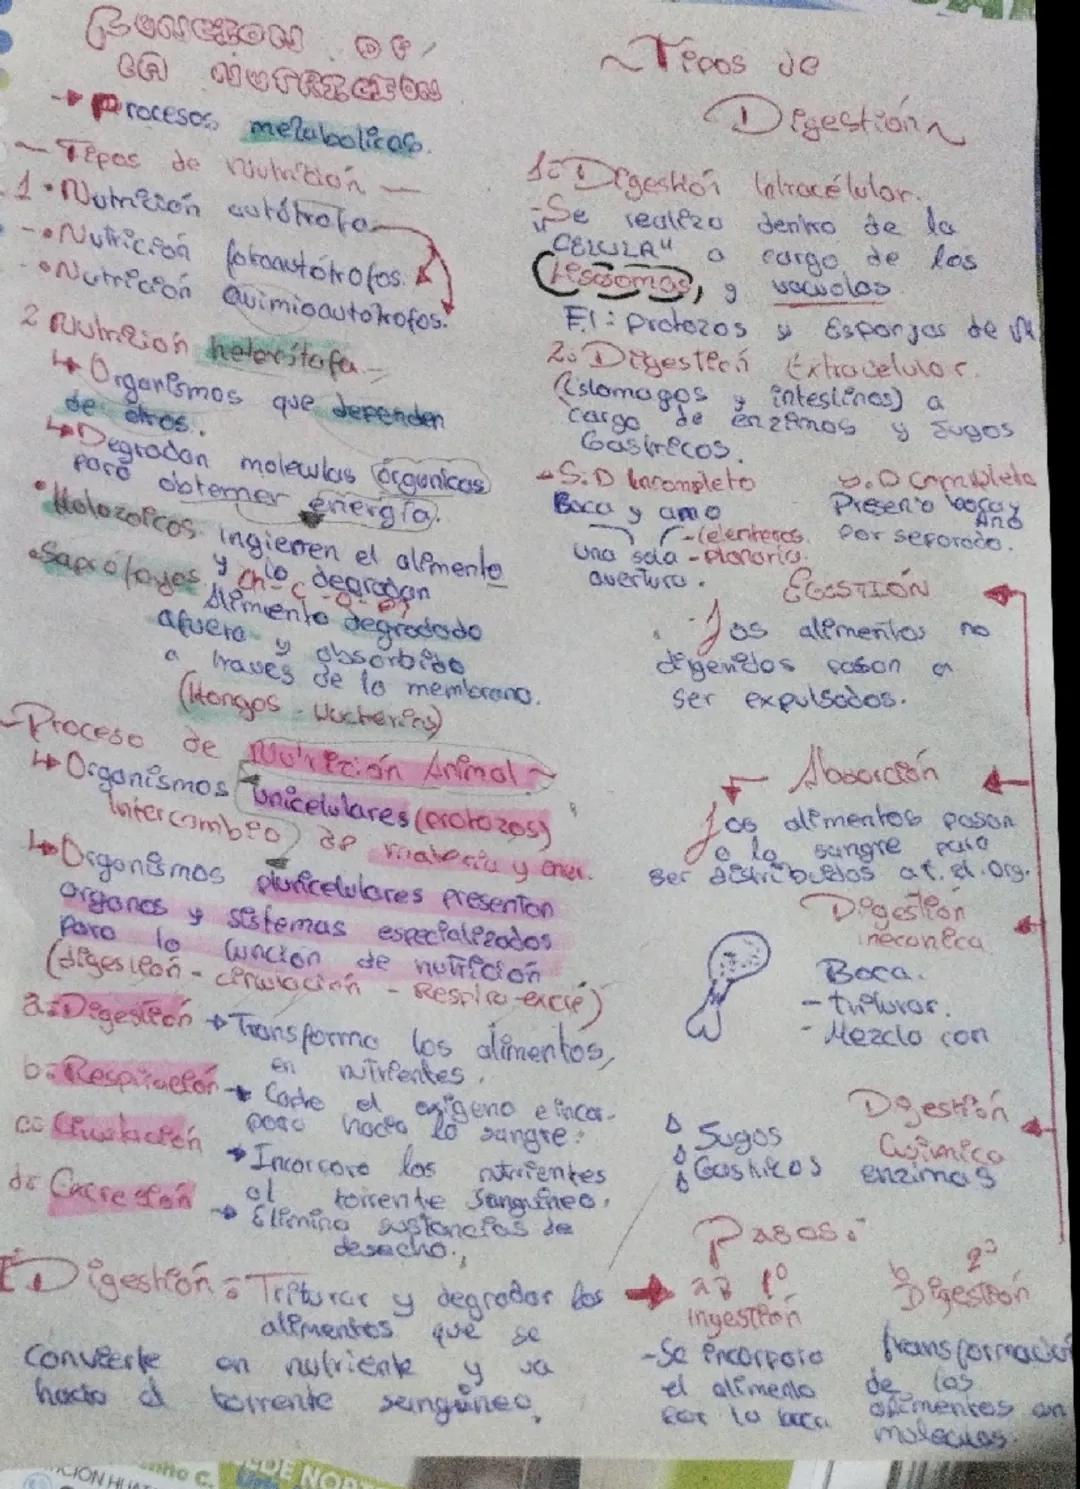 FUNCION DE
LA NUTRICION
→ Procesos metabolicos.
~ Tipos de Nutricion —
1 • Nutrición autótrofa
- • Nutrición fotoautótrofos.
- • Nutrición Quimioautotrofos.
2 Nutricion heterótofa.-
↳ Organismos que dependen
de otros.
↳ Degradan moleculas órganicas
para obtemer energía.
• Holozoicos ingieren el alimento
y lo degradan
• Saprófayos Ch-C-O-
Alimento degradado
afuera y absorbido
a traves de la membrana.
(Hongos - bacterias)
~ Proceso de Nutrición Animal ~
↳ Organismos unicelulares (protozos)
intercambio de materia y ener.
↳ Organismos pluricelulares presentan
organos y sistemas especializados
para la función de nutrición
(digestión - circulación - Respira-excre)
a= Digestión → Transforma los alimentos,
en nutrientes.
b= Respiración → Capte el oxigeno e incor-
pora hacia la sangre.
c= Circulación → Incorpora los nutrientes
al torrente Sanguíneo.
d= Excreción → Elimina sustancias de
desecho.
I Digestión = Triturar y degradar los
alimentos que se
convierte en nutriente y va
hacia el torrente sanguineo.
~ Tipos de
Digestión ~
1= Digestión Intracélular.
- Se realiza dentro de la
"CELULA" a cargo de los
Lisosomas, y vacuolas
EJ: protozos y Esponjas de
2. Digestión Extracelular.
(Estomagos y intestinos) a
cargo de enzimas y Jugos
Gastricos.
- S.D Incompleto
Boca y ano
una sola avertura.
- Celenteros.
- Planaria.
S.D Completa
Presenta boca y
Ano
por seporado.
EGESTIÓN
- Los alimentos no
digeridos pasan a
ser expulsados.
Absorción
Los alimentos pasan
a la sangre para
ser distribuidos a t. el. Org.
Digestion
mecanica
Boca.
- triturar.
- Mezcla con
Digestión
Quimica
Jugos
Gastricos enzimas
Pasos:
a) 1º
Ingestión
- Se incorpora
el alimento
por la boca
b 2º
Digestión
transformación
de los
alimentos en
moleculas.
CION
nho C.
DE NORT